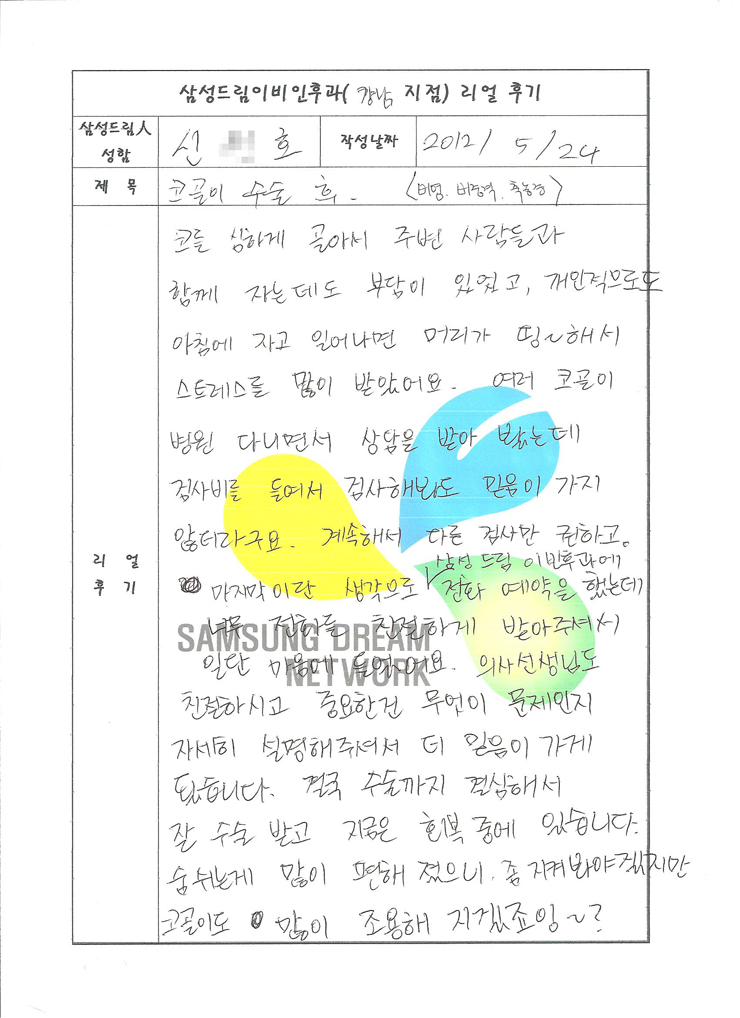 삼성드림이비인후과( 강남 지점) 리얼 후기
삼성드림人 성함
신 호
작성날짜
2012/ 5/24
제 목
코골이 수술 후. (비염, 비중격, 축농증)
리 얼 후 기
코를 심하게 골아서 주변 사람들과
함께 자는데도 부담이 있었고, 개인적으로도
아침에 자고 일어나면 머리가 띵~해서
스트레스를 많이 받았어요. 여러 코골이
병원 다니면서 상담을 받아 봤는데
검사비를 들여서 검사해봐도 믿음이 가지
않더라구요. 계속해서 다른 검사만 권하고.
삼성 드림 이비인후과에
마지막이란 생각으로 전화 예약을 했는데
너무 전화를 친절하게 받아주셔서
일단 마음에 들었어요. 의사선생님도
친절하시고 중요한건 무엇이 문제인지
자세히 설명해주셔서 더 믿음이 가게
됐습니다. 결국 수술까지 결심해서
잘 수술 받고 지금은 회복 중에 있습니다.
숨쉬는게 많이 편해 졌으니, 좀 지켜봐야겠지만
코골이도 많이 조용해 지겠죠잉~?
SAMSUNG DREAM
NETWORK